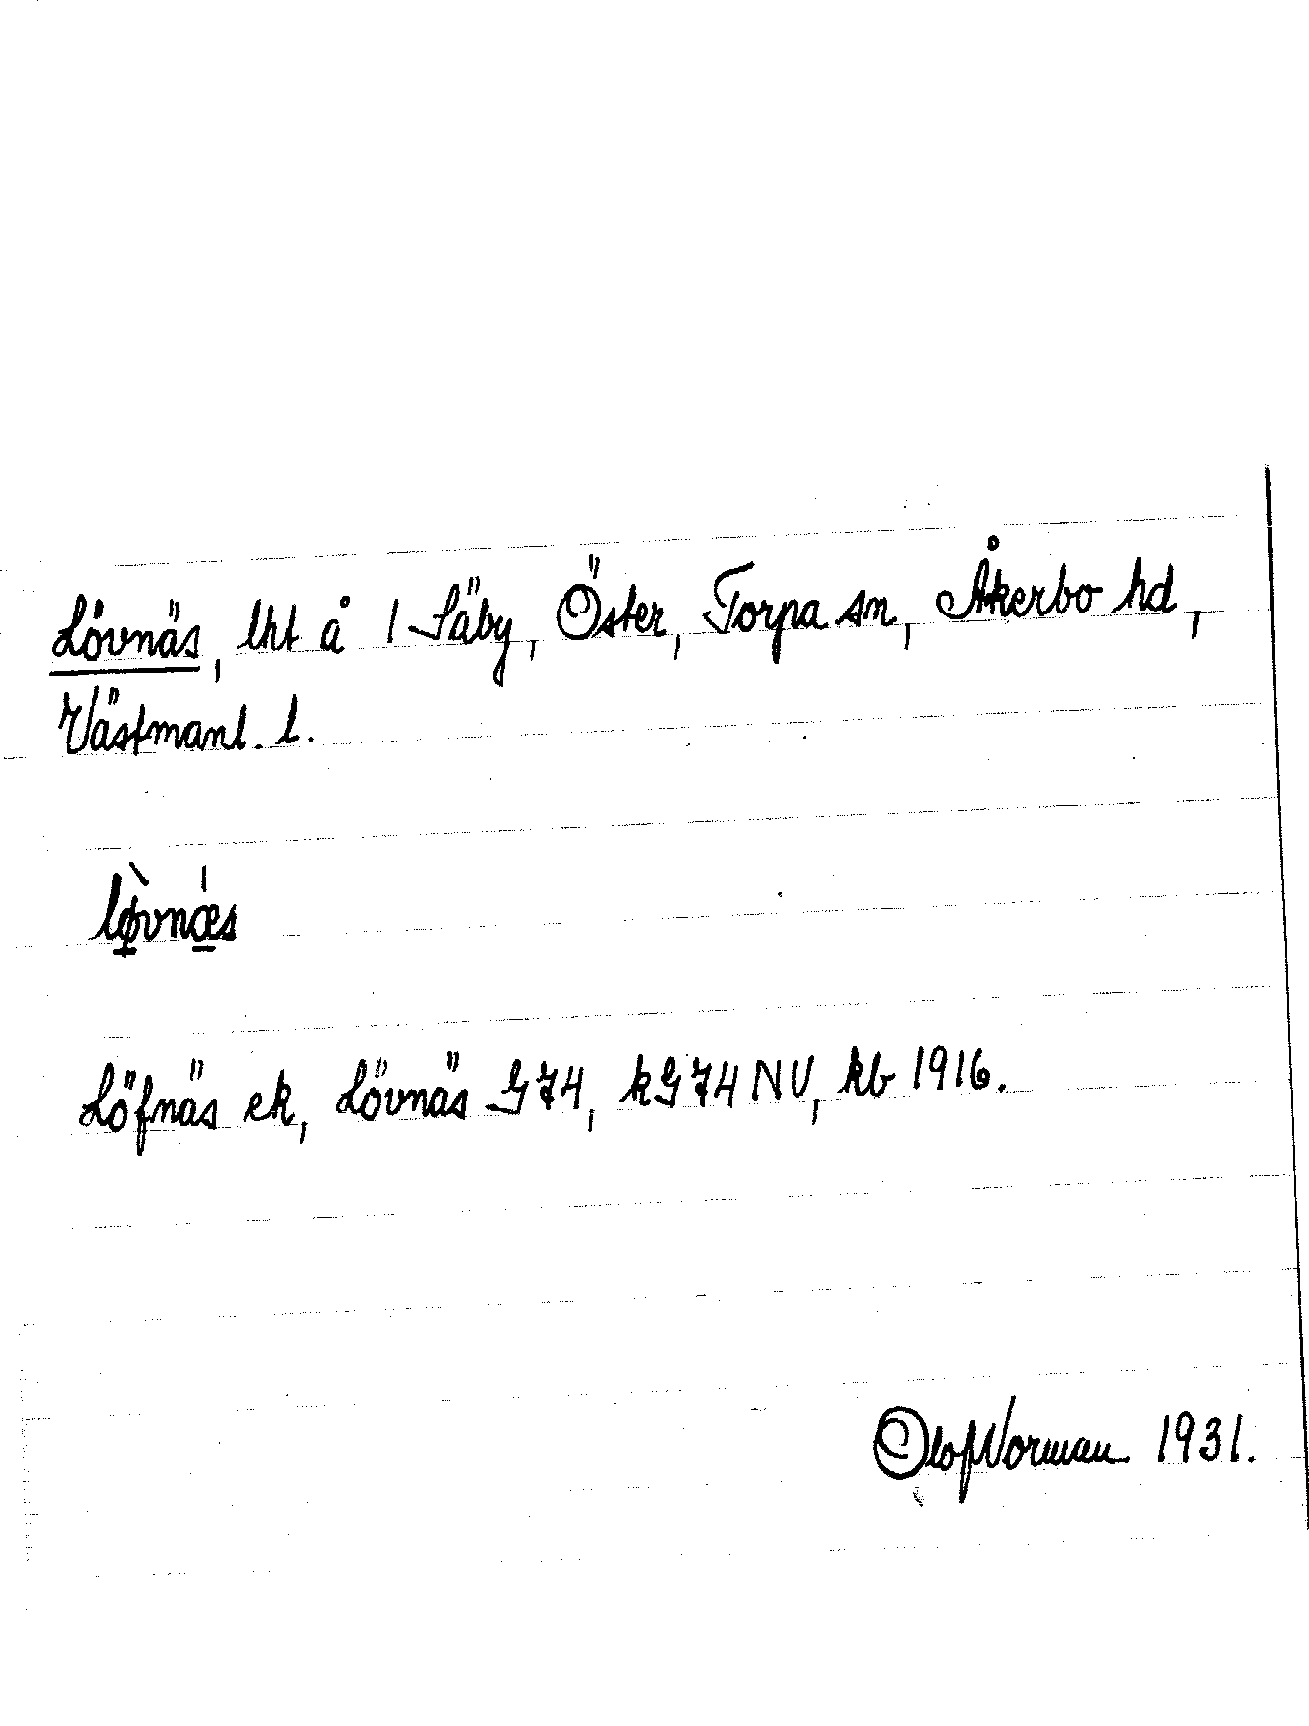 Lövnäs, lht å 1 Säby, Öster, Torpa sn, Åkerbo hd,
Västmanl. l.
lø̱̀vnæ̱s
Löfnäs ek, Lövnäs G74, kG74 NV, kb 1916.
Olof Norman 1931.